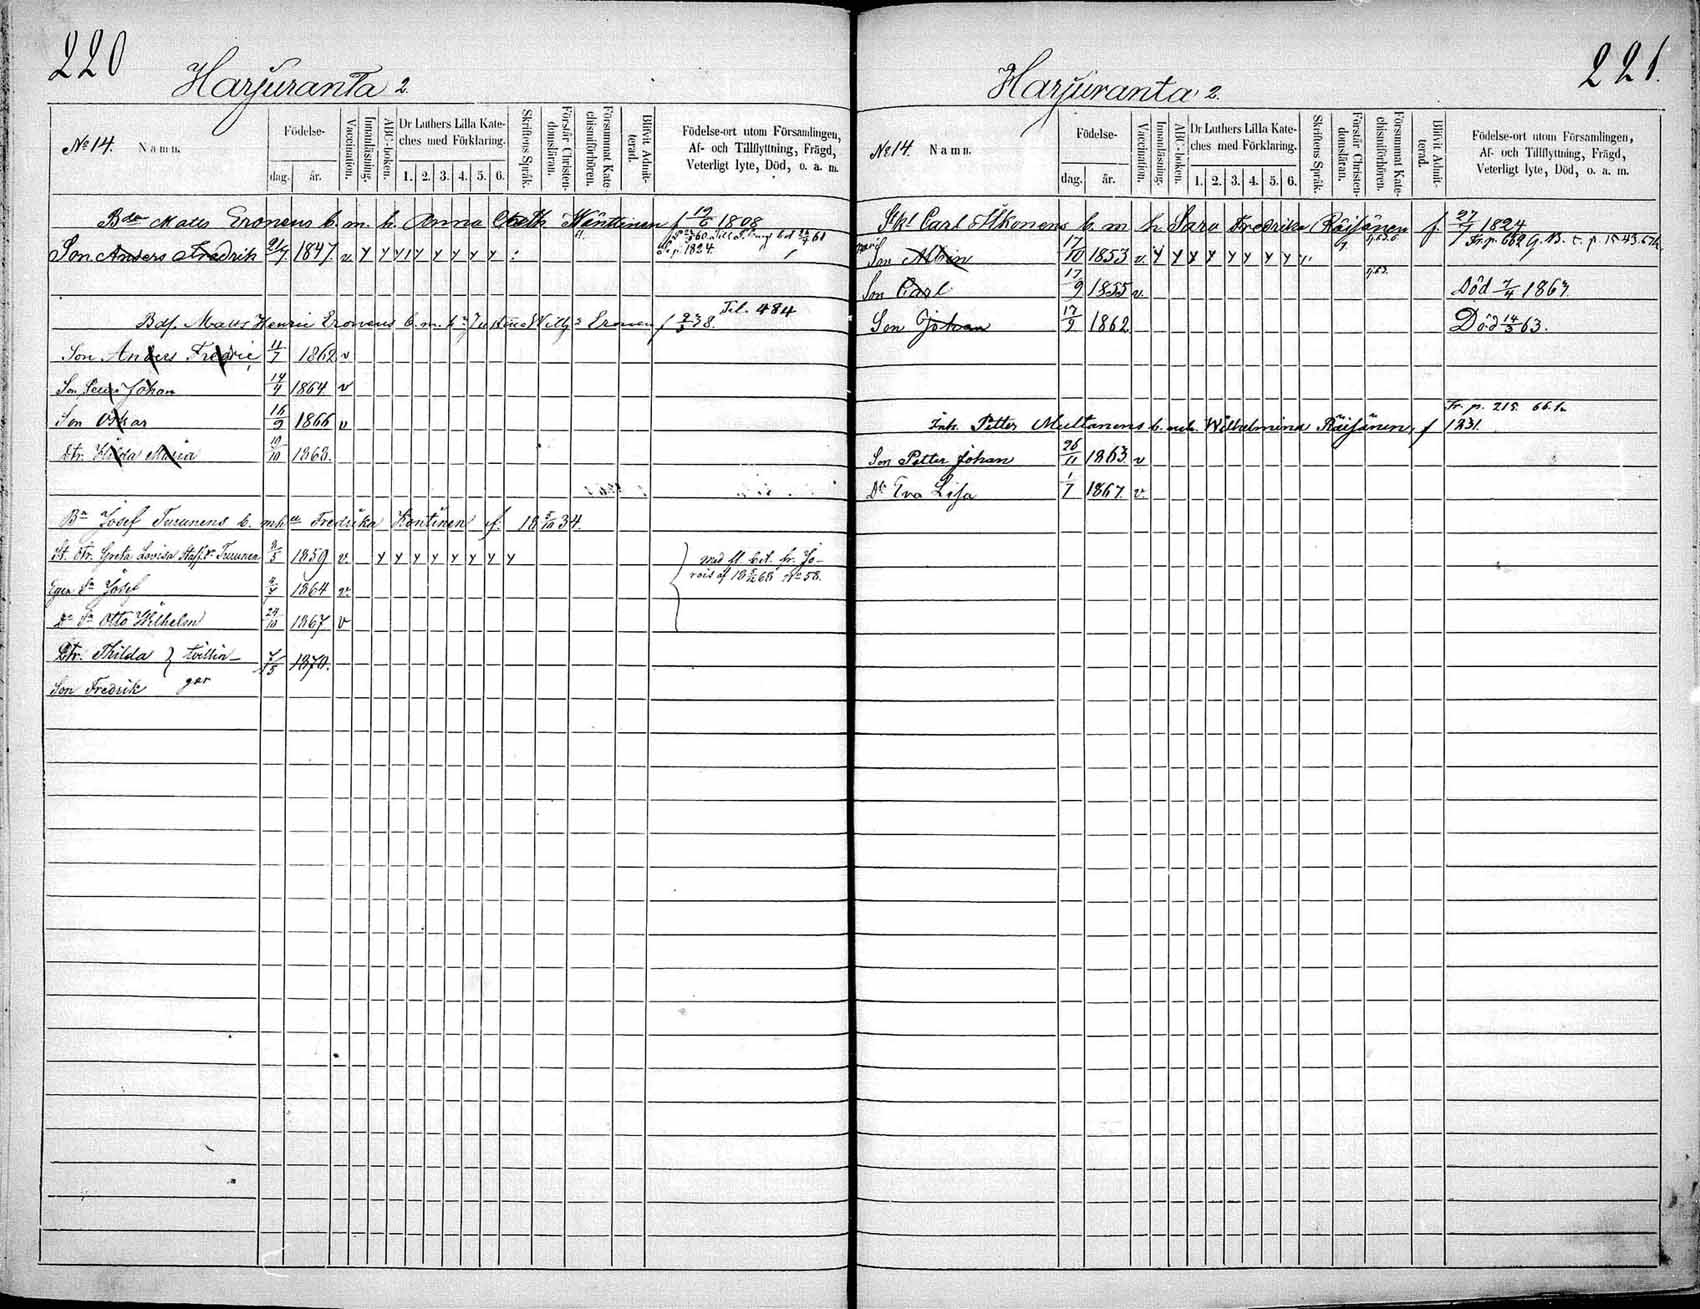 220
Harjuranta 2.
No 14. Namn.
Födelse-
dag.
år.
Vaccination.
Innanläsning.
ABC-boken.
Dr Luthers Lilla Kate-
ches med Förklaring.
1. 2. 3. 4. 5. 6.
Skriftens Språk.
Förstår Christen-
domsläran.
Försummat Kate-
chismiförhören.
Blifvit Admit-
terad.
Födelse-ort utom Församlingen,
Af- och Tillflyttning, Frägd,
Veterligt lyte, Död, o. a. m.
Matts Eronens b. m. h. Anna f 19/6 1808
Son Anders Fredrik 1847. v y y y y y y y y
p. 1824.
Til. 484
Bdf. Matts Henric Eronens b. m. h. Eronen f 38.
Son Anders Fredric 11/7 1862 v
Son Johan 14/4 1864. v
Son Oskar 16/9 1866 v
Dtr. Hilda Maria 19/10 1868.
Josef Turunens b. m h Fredrika Kontinen f. 18 34.
Dtr. Greta Lovisa Turunen 1859 v. y y y y y y y y
Josef 1864 v.
Otto Wilhelm 24/10 1867 v
Dtr. Thilda } tvillin- 1870.
Son Fredrik gar
221.
Harjuranta 2.
No 14. Namn.
Födelse-
dag.
år.
Vaccination.
Innanläsning.
ABC-boken.
Dr Luthers Lilla Kate-
ches med Förklaring.
1. 2. 3. 4. 5. 6.
Skriftens Språk.
Förstår Christen-
domsläran.
Försummat Kate-
chismiförhören.
Blifvit Admit-
terad.
Födelse-ort utom Församlingen,
Af- och Tillflyttning, Frägd,
Veterligt lyte, Död, o. a. m.
Carl Ikonens b. m h. Sara Fredrika Räisänen f. 27/7 1824
Son Albin 17/10 1853 v. y y y y y y y y
Son Carl 17/9 1855 v. Död 7/4 1863.
Son Johan 17/2 1862. Död 14/3 63.
Fr. p. 215.
Inh. Petter Multanens b. m. h. Wilhelmina Räisänen f 1831.
Son Petter Johan 26/11 1863 v
Dr Eva Lisa 1/7 1867. v